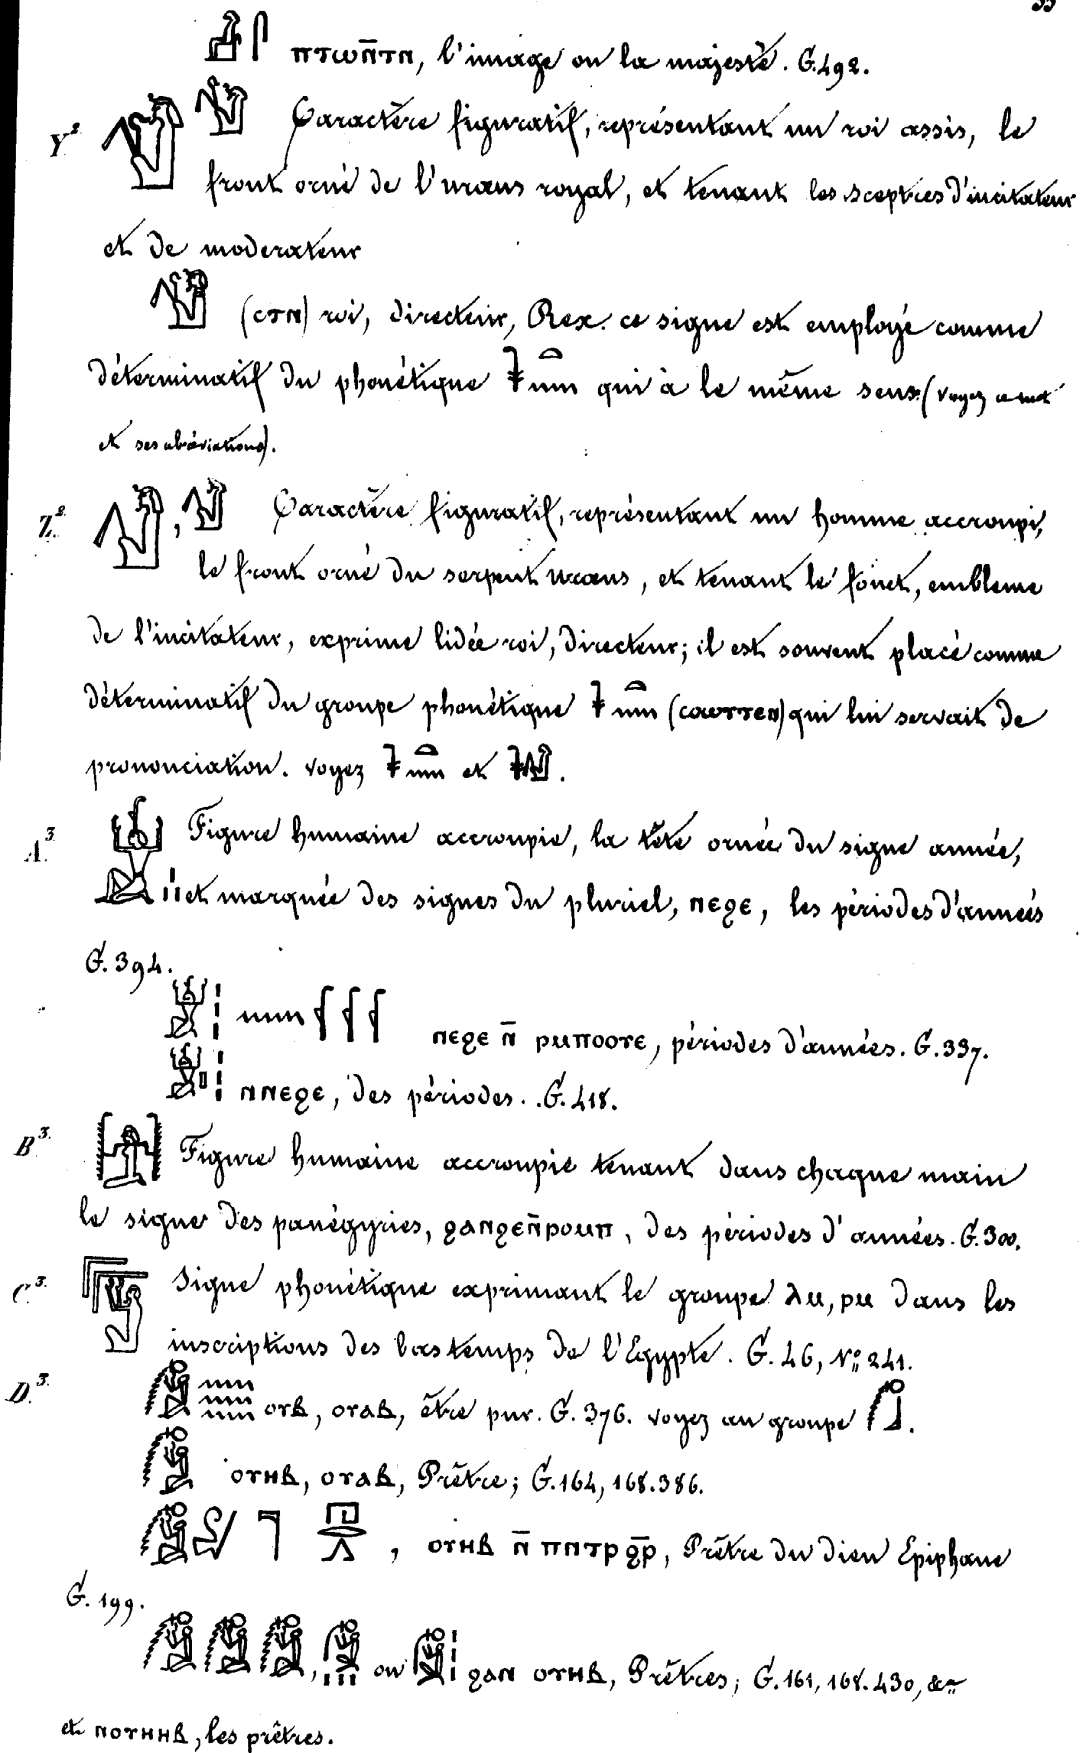 33
ⲡⲧⲱⲛ̄ⲧⲛ, l'image ou la majesté. G. 492.
Y².  Caractère figuratif, représentant un roi assis, le
front orné de l'uraeus royal, et tenant les sceptres d'incitateur
et de moderateur
(ⲥⲧⲛ) roi, directeur, Rex. ce signe est employé comme
déterminatif du phonétique 𓇓𓏏𓈖 qui à le même sens (voyez ce mot
et ses abréviations).
Z². , Caractère figuratif, représentant un homme accroupi,
le front orné du serpent uraeus, et tenant le fouet, embleme
de l'incitateur, exprime lidée roi, directeur; il est souvent placé comme
déterminatif du groupe phonétique 𓇓𓏏𓈖 (ⲥⲟⲩⲧⲧⲉⲛ) qui lui servait de
prononciation. voyez 𓇓𓏏𓈖 et .
A³. Figure humaine accroupie, la tête ornée du signe année,
et marquée des signes du pluriel, ⲛⲉϩⲉ, les périodes d'années
G. 394.
ⲛⲉϩⲉ ⲛ̄ ⲣⲙⲡⲟⲟⲩⲉ, périodes d'années. G. 337.
ⲛⲛⲉϩⲉ, des périodes. G. 418.
B³. Figure humaine accroupie tenant dans chaque main
le signe des panégyries, ϩⲁⲛϩⲉⲛ̄ⲣⲟⲙⲡ, des périodes d'années. G. 300.
C³. Signe phonétique exprimant le groupe ⲗⲙ, ⲣⲙ dans les
inscriptions des bas temps de l'Egypte. G. 46, Nº 241.
D³. ⲟⲩⲃ, ⲟⲩⲁⲃ, être pur. G. 376. voyez au groupe .
ⲟⲩⲏⲃ, ⲟⲩⲁⲃ, Prêtre; G. 164, 168. 386.
, ⲟⲩⲏⲃ ⲛ̄ ⲡⲛⲧⲣ ϩ̄ⲣ, Prêtre du dieu Epiphane
G. 199.
, ou ϩⲁⲛ ⲟⲩⲏⲃ, Prêtres; G. 161, 168. 430, &c
et ⲛⲟⲩⲏⲏⲃ, les prêtres.